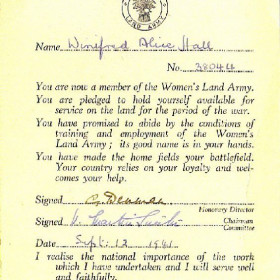 LAND ARMY
Name Winifred Alice Hall
No. 38044
You are now a member of the Women's Land Army.
You are pledged to hold yourself available for
service on the land for the period of the war.
You have promised to abide by the conditions of
training and employment of the Women's
Land Army ; its good name is in your hands.
You have made the home fields your battlefield.
Your country relies on your loyalty and wel-
comes your help.
Signed
Honorary Director
Signed
Chairman
Committee
Date Sept. 13 1941
I realise the national importance of the work
which I have undertaken and I will serve well
and faithfully.